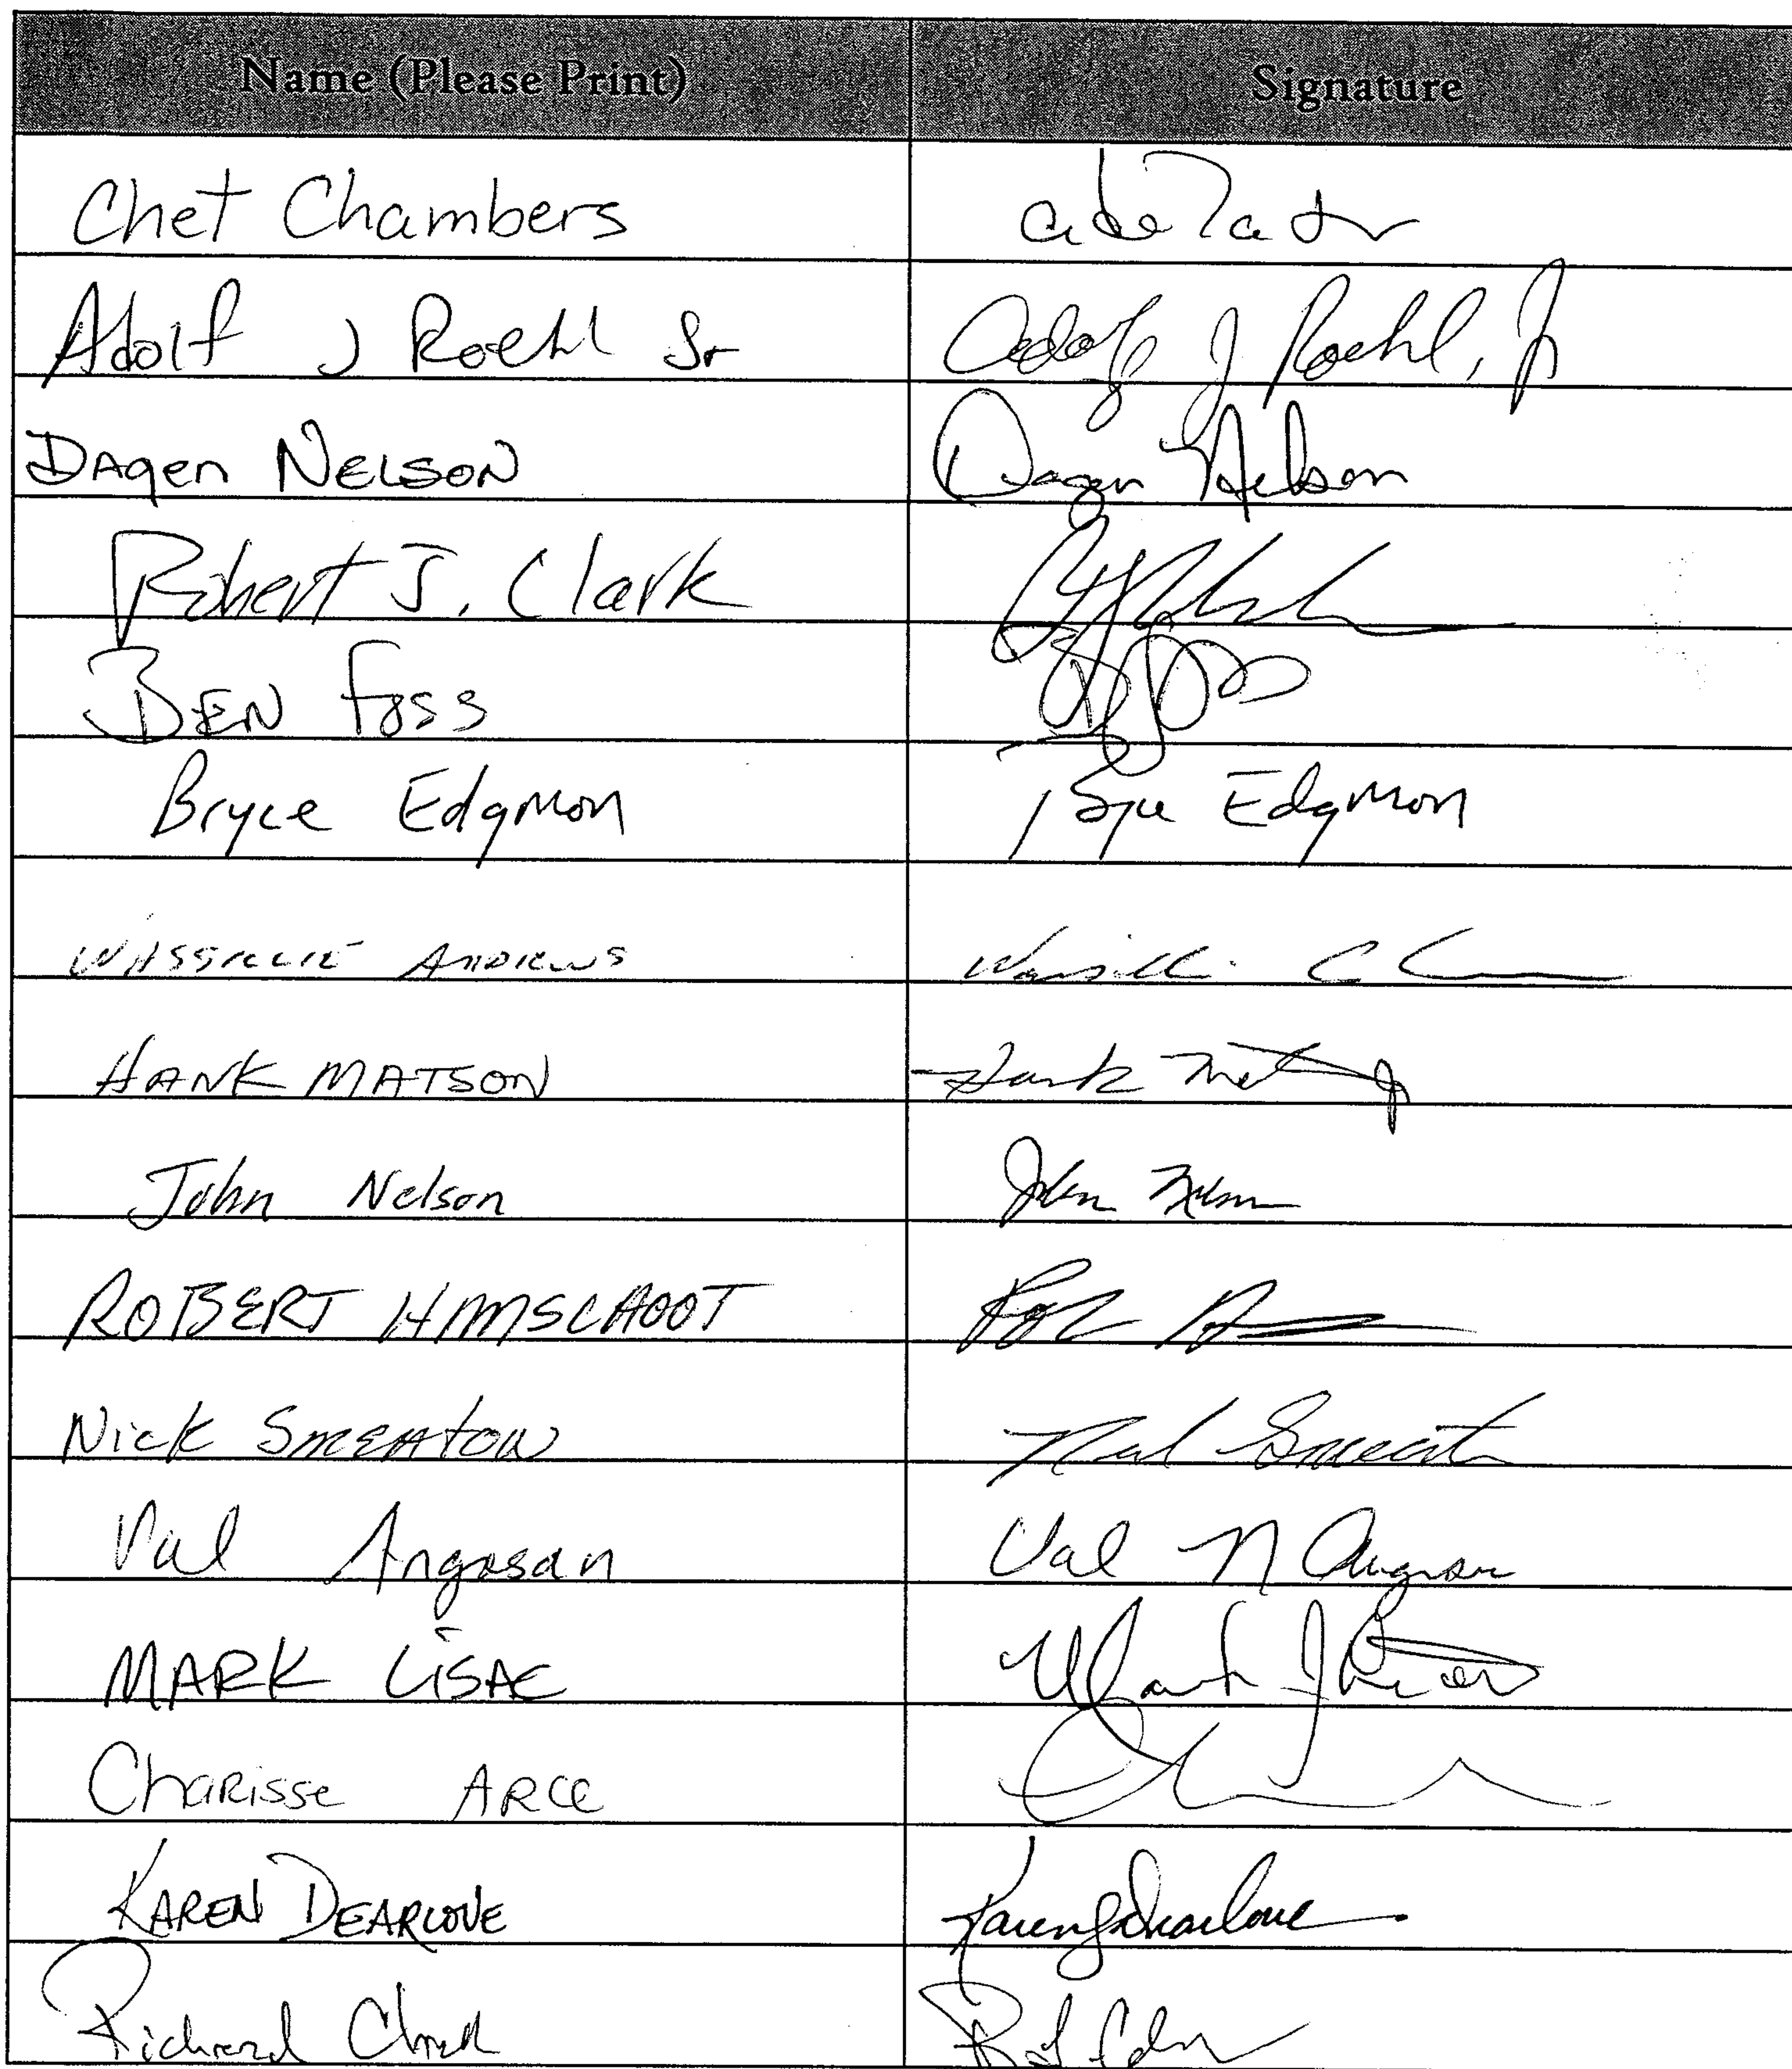 Name (Please Print) Signature
Chet Chambers
Adolf J Roehl Sr Adolf J Roehl, Jr
DAgen NELSON Dagen Nelson
Robert J. Clark
BEN FOSS
Bryce Edgmon Bryce Edgmon
WASSILLIE ANDREWS Wassillie
HANK MATSON Hank
John Nelson John Nelson
ROBERT HIMSCHOOT
Nick SMEATON Smeaton
Val Angasan Val N Angasan
MARK LISAC Mark J
Charisse ARCE
KAREN DEARLOVE Karen J Dearlove
Richard